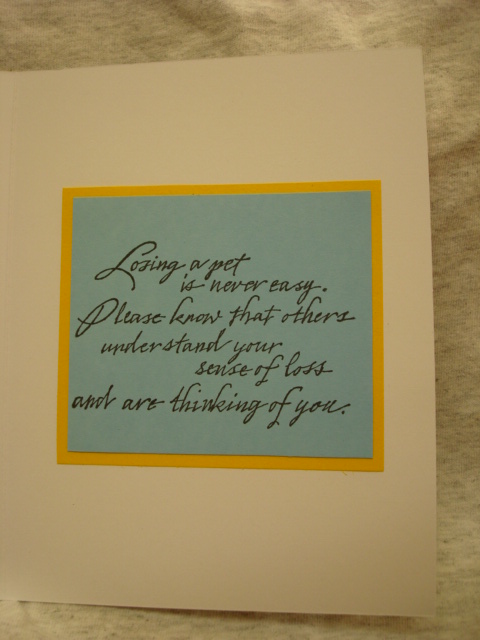 Losing a pet
is never easy.
Please know that others
understand your
sense of loss
and are thinking of you.